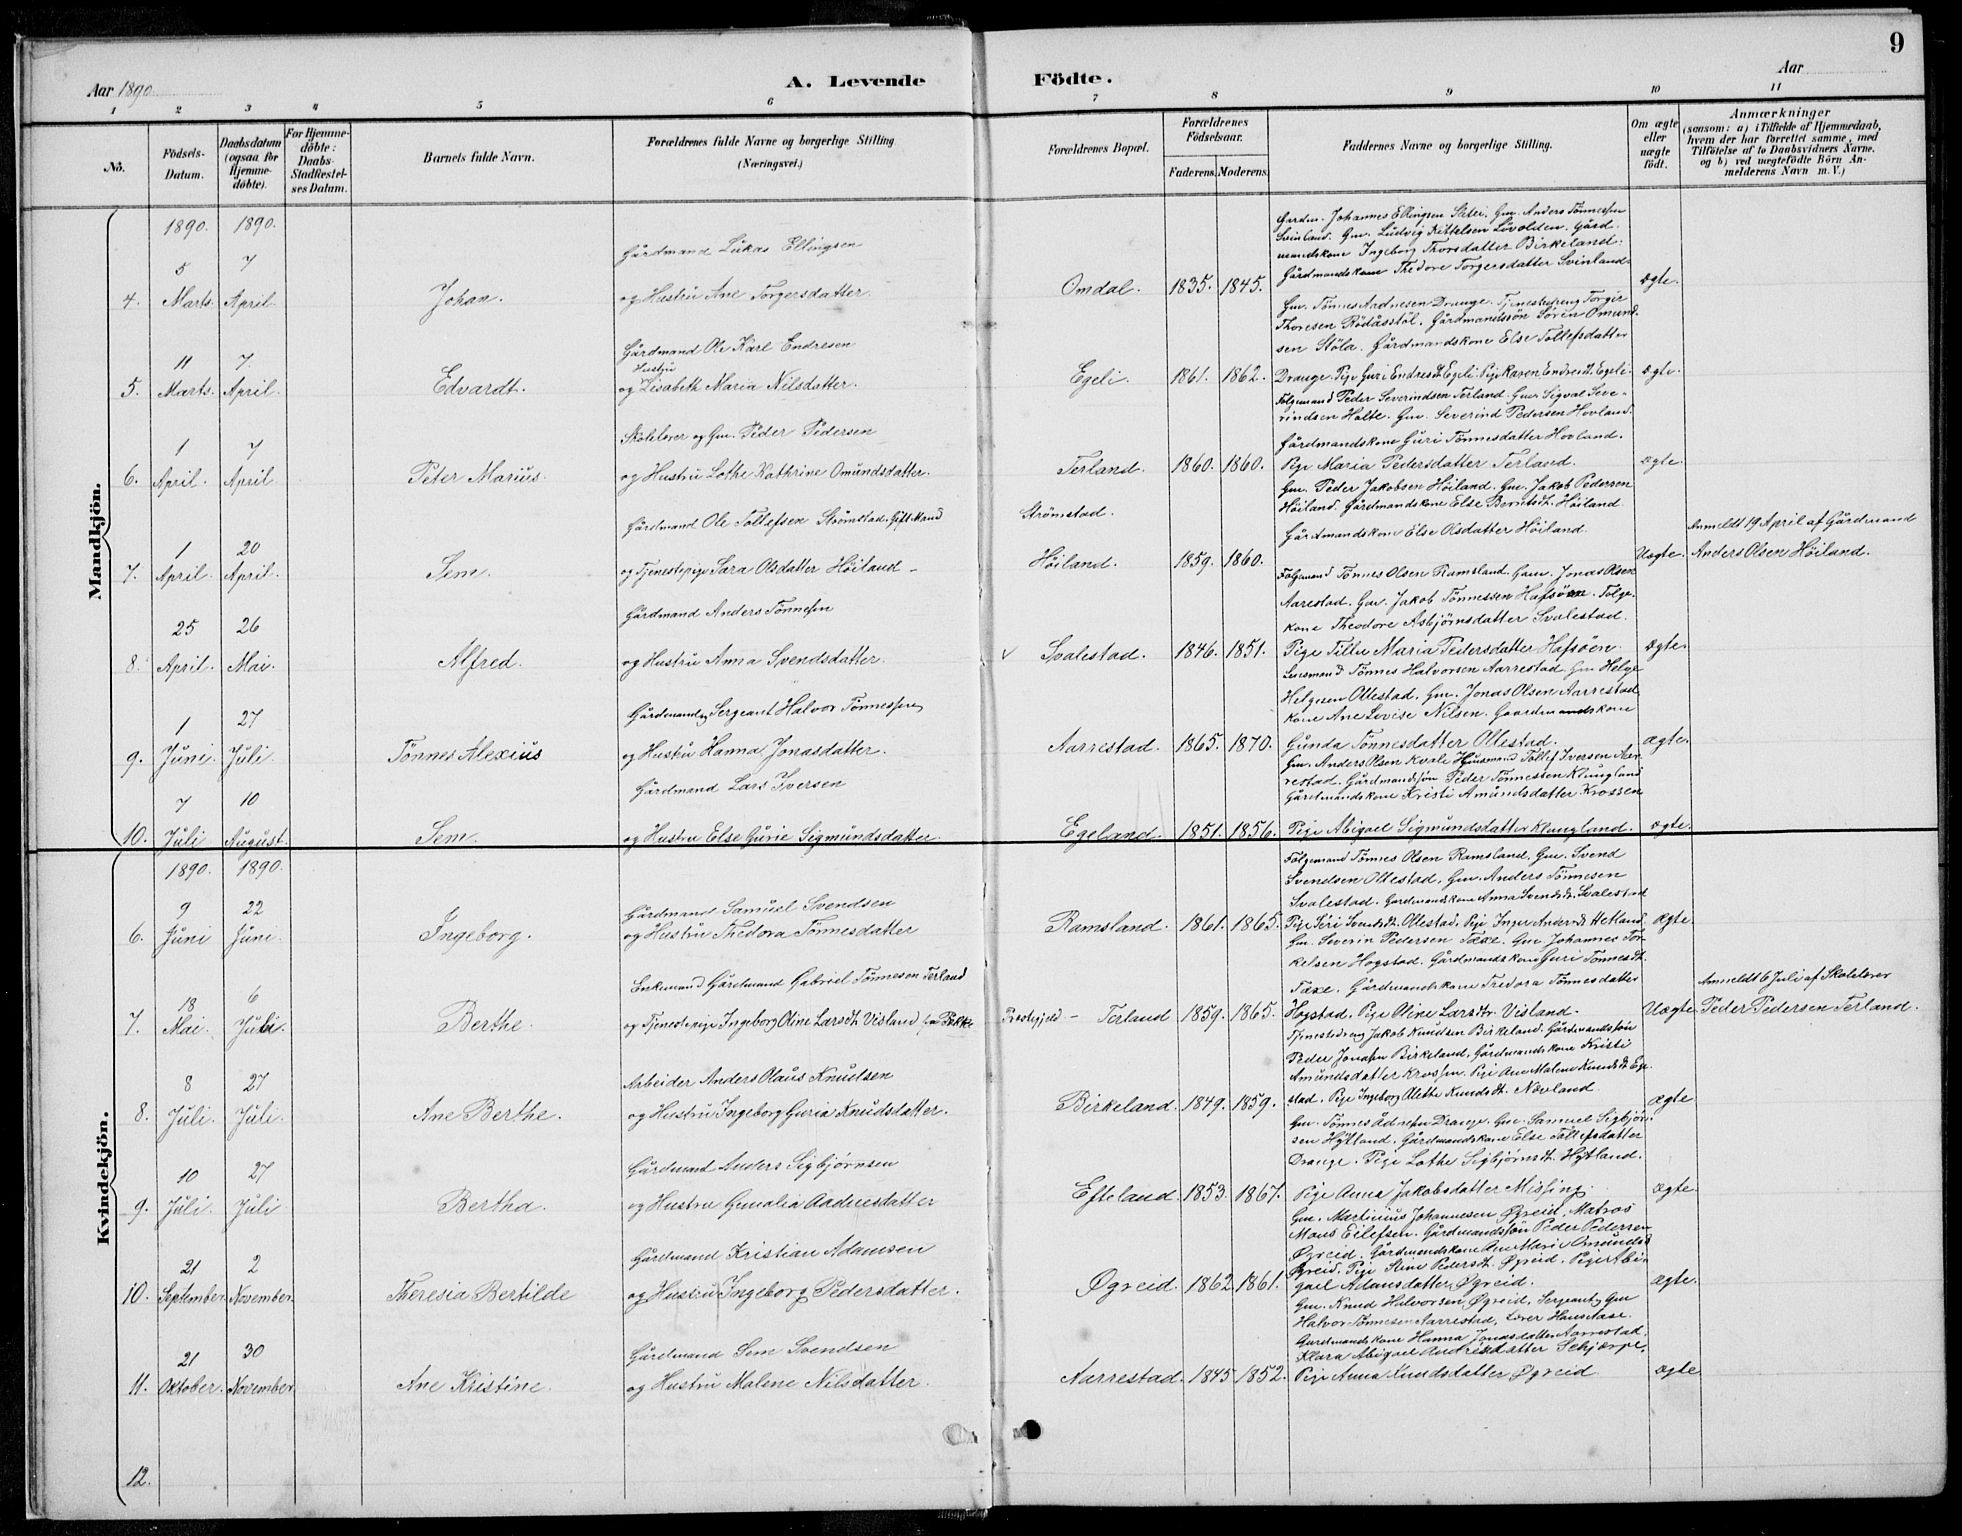 9
Aar 1890
A. Levende Födte.
Aar
1 2 3 4 5 6 7 8 9 10 11
No.
Födsels-Datum.
Daabsdatum (ogsaa for Hjemme-döbte).
For Hjemme-döbte: Daabs-Stadfæstel-ses Datum.
Barnets fulde Navn.
Forældrenes fulde Navne og borgerlige Stilling (Næringsvei.)
Forældrenes Bopæl.
Forældrenes Födselsaar.
Faderens. Moderens.
Faddernes Navne og borgerlige Stilling.
Om ægte eller uægte födt.
Anmærkninger (saasom: a) i Tilfælde af Hjemmedaab, hvem der har forrettet samme, med Tilföielse af to Daabsvidners Navne, og b) ved uægtefödte Börn An-melderens Navn m. V.)
Mandkjön.
1890. 1890.
4. 5 Marts. 7 April. Johan.
Gårdmand Lukas Ellingsen
og Hustru Ane Torgersdatter.
Omdal. 1835. 1845.
Gardm. Johannes Ellingsen Sletei, Gm. Anders Tönnessen
Svinland. Gm. Ludvig Kittelsen Lovolden. Gård
mandskone Ingeborg Thorsdatter Birkeland.
Gårdmandskone Thedore Torgersdatter Svinland.
ægte.
5. 11 Marts. 7. April. Edvardt.
Gårdmand Ole Karl Endresen
og Hustru Lisabeth Maria Nilsdatter.
Egeli. 1861. 1862.
Gm. Tönnes Aadnesen Drange. Tjenestedreng Torger
Thoresen Rödåsstöl. Gårdmandssön Sören Omund-
sen Stöla. Gårdmandskone Else Tollefsdatter
Drange. Pige Guri Endresdt. Egeli. Pige Karen Endresdt. Egeli
ægte.
6. 1 April. 7 April Peter Marius.
Skolelærer og Gm. Peder Pedersen
og Hustru Lothe Kathrine Omundsdatter.
Terland. 1860. 1860.
Folgemand Peder Severindsen Terland. Gm. Sigval Seve-
rindsen Halte. Gm. Severind Pedersen Hovland.
Gårdmandskone Guri Tönnesdatter Hovland.
Pige Maria Pedersdatter Terland.
ægte.
7. 1 April. 20 April. Sem.
Gårdmand Ole Tollefsen Strömstad. Gift Mand
og Tjenestepige Sara Olsdatter Höiland -
Strömstad.
Höiland. 1859. 1860.
Gm. Peder Jakobsen Höiland. Gm. Jakob Pedersen
Höiland. Gårdmandskone Else Berntsdt. Höiland
Gårdmandskone Else Olsdatter Höiland
Uægte.
Anmeldt 19 April af Gårdmand
Anders Olsen Höiland.
8. 25 April. 26 Mai. Alfred.
Gårdmand Anders Tönnesen
og Hustru Anna Svendsdatter.
Svalestad. 1846. 1851.
Folgemand Tönnes Olsen Ramsland. Gm. Jonas Olsen
Aarestad. Gm. Jakob Tönnessen Hafsöen. Folge-
kone Theodore Asbjörnsdatter Svalestad.
Pige Tilla Maria Pedersdatter Hafsöen.
ægte.
9. 1 Juni. 27 Juli. Tönnes Alexius
Gårdmand og Sergeant Halvor Tönnessen
og Hustru Hanna Jonasdatter.
Aarrestad. 1865. 1870.
Lensmand Tönnes Halvorsen Aarrestad. Gm Helge
Helgesen Ollestad. Gm. Jonas Olsen Aarrestad
kone Ane Lovise Nilsen. Gaardmandskone
Gunda Tönnesdatter Ollestad.
ægte.
10. 7 Juli 10 August. Sem.
Gårdmand Lars Iversen
og Hustru Else Gurie Sigmundsdatter.
Egeland. 1851. 1856.
Gm. Anders Olsen Kvale. Husmand Tollef Iversen Aar-
restad. Gårdmandssön Peder Tönnesten Klungland
Gårdmandskone Kristi Amundsdatter Krossen
Pige Abigael Sigmundsdatter Klungland.
ægte.
Kvindekjön.
1890. 1890.
6. 9 Juni 22 Juni. Ingeborg.
Gårdmand Samuel Svendsen
og Hustru Thedora Tönnesdatter
Ramsland. 1861. 1865.
Folgemand Tönnes Olsen Ramsland, Gm. Svend
Svendsen Ollestad. Gm. Anders Tönnesen
Svalestad. Gardmandskone Anna Svendsdt. Svalestad
Pige Siri Svendsdt. Ollestad. Pige Inger Andersdt Hetland
ægte.
7. 18 Mai. 6 Juli. Berthe.
Enkemand Gårdmand Gabriel Tönnesen Terland
og Tjenestepige Ingeborg Oline Larsdt. Visland,
Præstegjeld - Terland 1859. 1865.
Gm. Severin Pedersen Taxe. Gm. Johannes Tor-
kelsen Hogstad. Gårdmandskone Guri Tönnesdt.
Taxe. Gårdmandskone Tredora Tönnesdatter
Hogstad. Pige Oline Larsdtr. Visland.
Uægte.
Anmeldt 6 Juli af Skolelærer
Peder Pedersen Terland.
8. 8 Juli. 27 Juli. Ane Berthe.
Arbeider Anders Olaus Knudsen
og Hustru Ingeborg Guria Knudsdatter.
Birkeland. 1849. 1859.
Tjenestedreng Jakob Knudsen Birkeland. Gårdmandssön
Peder Jonassen Birkeland. Gårdmandskone Kristi
Amundsdatter Krossen. Pige Ane Malene Knudsdt. Ege-
stad. Pige Ingeborg Olette Knudsdt. Nevland
ægte
9. 10 Juli. 27 Juli Bertha.
Gårdmand Anders Sigbjörnsen
og Hustru Gunalia Aadnesdatter
Efteland. 1853. 1867.
Gm. Tönnes Adnesen Drange. Gm. Samuel Sigbjörn-
sen Hytland. Gårdmandskone Else Tollefsdatter
Drange. Pige Lothe Sigbjörnsdt. Hytland.
Pige Anna Jakobsdatter Missing.
ægte.
10. 21 September. 2 November. Theresia Bertilde
Gårdmand Kristian Adamsen
og Hustru Ingeborg Pedersdatter.
Øgreid. 1862. 1861.
Gm. Martinius Johannesen Øgreid. Matros
Mons Eilefsen. Gårdmandssön Peder Pedersen
Øgreid. Gårdmandskone Ane Marie Omundsd
Øgreid. Pige Stine Pedersdt. Øgreid. Pige Abi-
gael Adamsdatter Øgreid.
ægte.
11. 21 Oktober. 30 November. Ane Kristine.
Gårdmand Sem Svendsen
og Hustru Malene Nilsdatter.
Aarrestad. 1845. 1852.
Gm. Knud Halvorsen Øgreid. Sergeant, Gm
Halvor Tönnesen Aarrestad, Lærer
Gardmandskone Hanna Jonasdatter Aarrestad.
Klara Abigael Andreasdatter
Pige Anna Knudsdatter Øgreid
ægte
12.